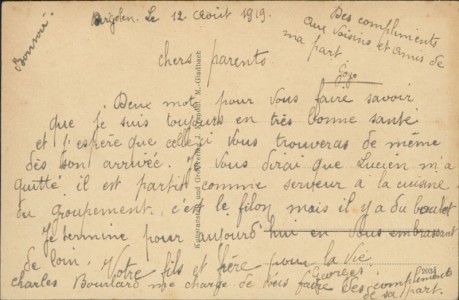 Bonsoir.
Le 12 Aout 1919.
Des compliments
aux voisins et amis de
ma part
chers parents
Deux mots pour vous faire savoir
que je suis toujours en très bonne santé
et j'espère que celle-ci vous trouveras de même
dès son arrivée. Je vous dirai que Lucien m'a
quitté il est parti comme serveur a la cuisine
du groupement. c'est le filon mais il y a du boulot
Je termine pour aujourd'hui en vous embrassant
de loin. Votre fils et frère pour la vie
Georges
Charles me charge de vous faire des compliments
de sa part.